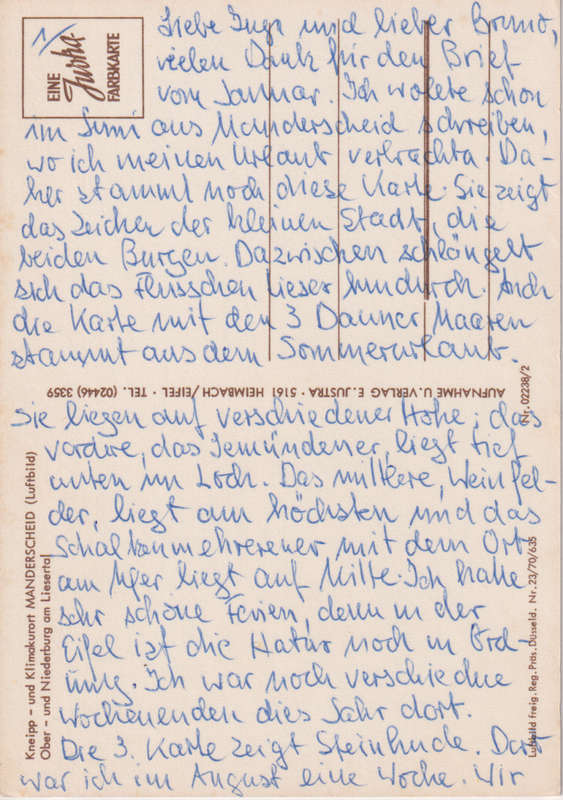 1/
EINE
Juska
FARBKARTE
Liebe Inge und lieber Bruno,
vielen Dank für den Brief
vom Januar. Ich wollte schon
im Juni aus Manderscheid schreiben,
wo ich meinen Urlaub verbrachte. Da-
her stammt noch diese Karte. Sie zeigt
das Zeichen der kleinen Stadt, die
beiden Burgen. Dazwischen schlängelt
sich das Flüsschen Lieser hindurch. Auch
die Karte mit den 3 Dauner Maaren
stammt aus dem Sommerurlaub.
AUFNAHME U. VERLAG E. JUSTRA · 5161 HEIMBACH/EIFEL · TEL. (02446) 3359
Nr. 02238/2
Sie liegen auf verschiedener Höhe; das
vordere, das Gemündener, liegt tief
unten im Loch. Das mittlere, Weinfel-
der, liegt am höchsten und das
Schalkenmehrerener mit dem Ort
am Ufer liegt auf Mitte. Ich hatte
sehr schöne Ferien, denn in der
Eifel ist die Natur noch in Ord-
nung. Ich war noch verschiedne
Wochenenden dies Jahr dort.
Die 3. Karte zeigt Steinhude. Dort
war ich im August eine Woche. Wir
Kneipp - und Klimakurort MANDERSCHEID (Luftbild)
Ober - und Niederburg am Liesertal
Luftbild freig. Reg. Präs. Düsseld. Nr. 23/70/635